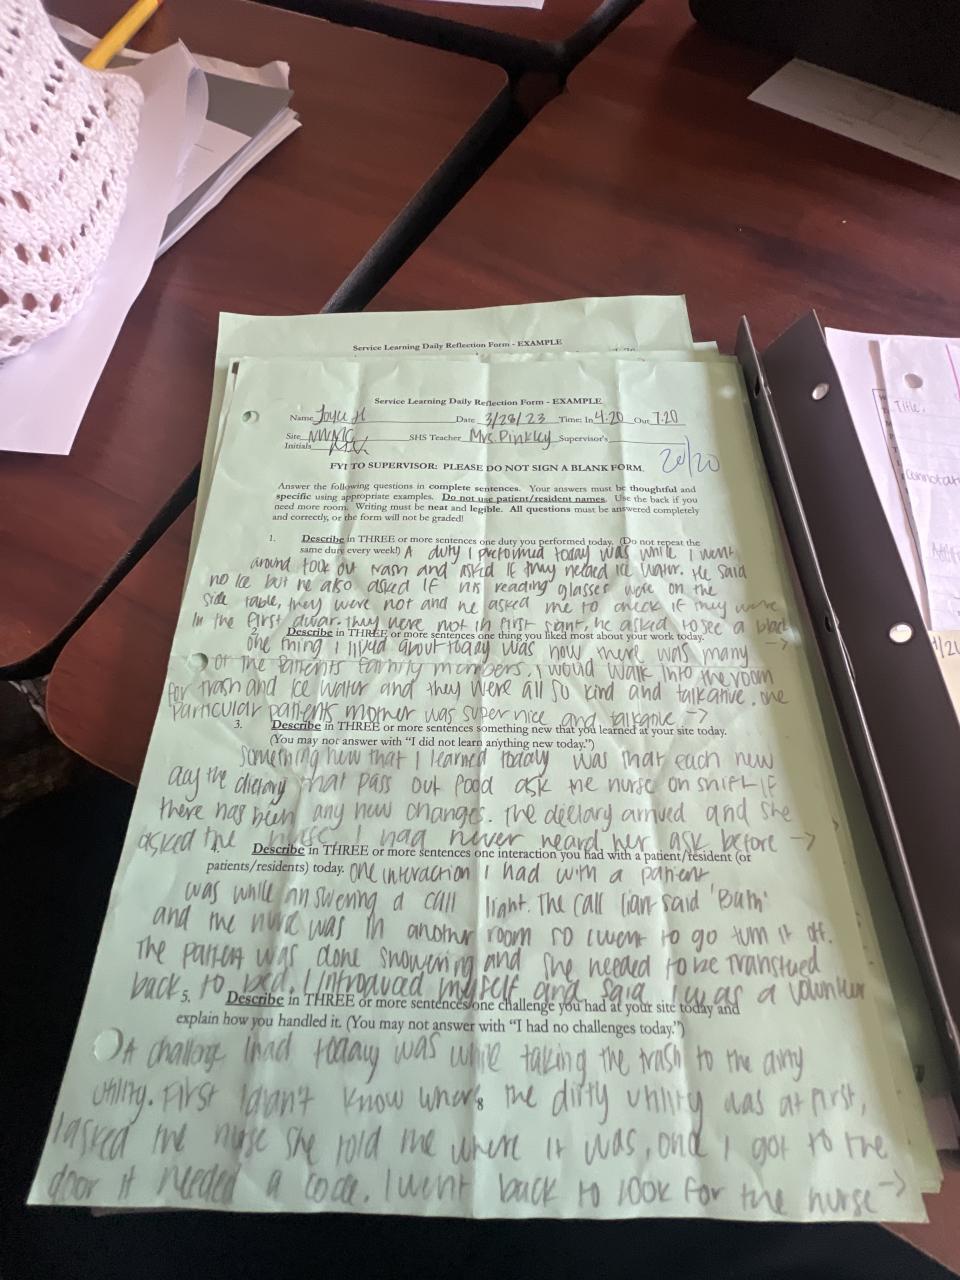 Service Learning Daily Reflection Form - EXAMPLE
Service Learning Daily Reflection Form - EXAMPLE
Name Joyce H Date 3/28/23 Time: In 4:20 Out 7:20
Site NWMC SHS Teacher Mrs. Pinkley Supervisor's
Initials
20/20
FYI TO SUPERVISOR: PLEASE DO NOT SIGN A BLANK FORM.
Answer the following questions in complete sentences. Your answers must be thoughtful and
specific using appropriate examples. Do not use patient/resident names. Use the back if you
need more room. Writing must be neat and legible. All questions must be answered completely
and correctly, or the form will not be graded!
1. Describe in THREE or more sentences one duty you performed today. (Do not repeat the
same duty every week!) A duty I preformed today was while I went
around took out trash and asked if they needed ice water. He said
no ice but he also asked if his reading glasses were on the
side table, they were not and he asked me to check if they were
in the first dwar. they were not in first sight, he asked to see a black →
2. Describe in THREE or more sentences one thing you liked most about your work today.
one thing I liked about today was how there was many
of the Patients family members. I would walk into the room
for trash and ice water and they were all so kind and talkative. one
particular patients mother was super nice and talkative. →
3. Describe in THREE or more sentences something new that you learned at your site today.
(You may not answer with "I did not learn anything new today.")
Something new that I learned today was that each new
day the dietary that pass out food ask the nurse on shift if
there has been any new changes. the dietary arrived and she
asked the nurse I had never heard her ask before →
4. Describe in THREE or more sentences one interaction you had with a patient/resident (or
patients/residents) today. One interaction I had with a patient
was while answering a call light. The call light said 'Bath'
and the nurse was in another room so I went to go turn it off.
The patient was done showering and she needed to be transfued
back to bed. I introduced myself and said I was a volunteer
5. Describe in THREE or more sentences one challenge you had at your site today and
explain how you handled it. (You may not answer with "I had no challenges today.")
A challenge I had today was while taking the trash to the dirty
utility. First I didn't know where the dirty utility was at first,
I asked the nurse she told me where it was, once I got to the
door it needed a code. I went back to look for the nurse →
Title.